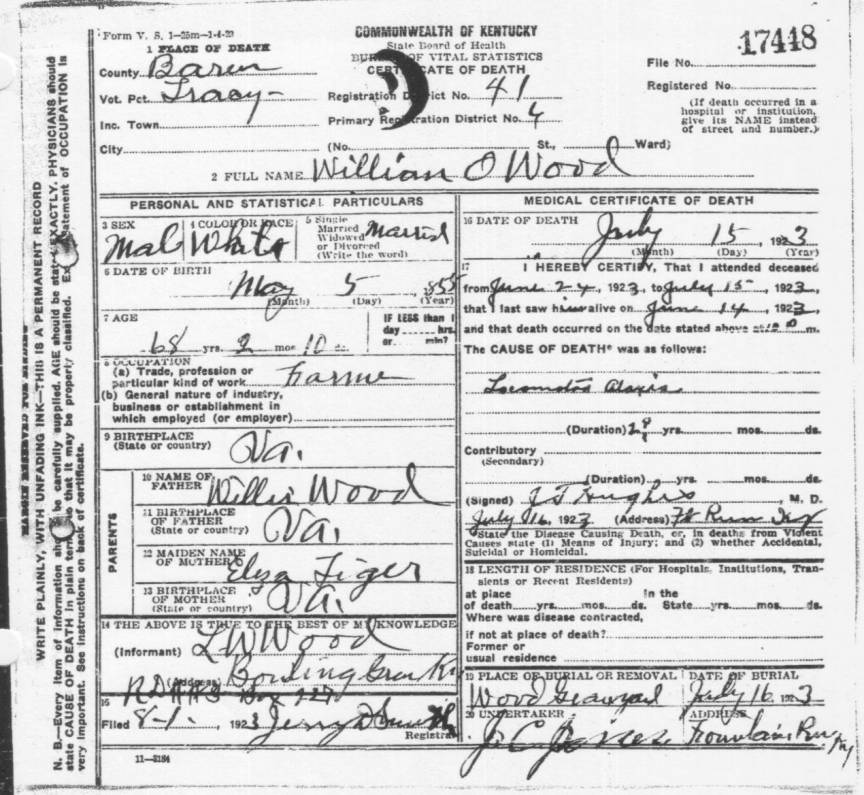 Form V. S. 1—25m—1-4-23
COMMONWEALTH OF KENTUCKY
State Board of Health
BUREAU OF VITAL STATISTICS
CERTIFICATE OF DEATH
17448
File No.
Registered No.
(If death occurred in a hospital or institution, give its NAME instead of street and number.)
1 PLACE OF DEATH
County Baren
Vot. Pct. Tracy
Inc. Town
City
Registration District No. 41
Primary Registration District No. 4
(No. St., Ward)
2 FULL NAME William O Wood
PERSONAL AND STATISTICAL PARTICULARS
3 SEX Mal
4 COLOR OR RACE White
5 Single Married Widowed or Divorced (Write the word) Married
6 DATE OF BIRTH
May 5 1855
(Month) (Day) (Year)
7 AGE
68 yrs. 2 mos 10 ds.
IF LESS than 1 day hrs. or min?
8 OCCUPATION
(a) Trade, profession or particular kind of work Farmer
(b) General nature of industry, business or establishment in which employed (or employer)
9 BIRTHPLACE (State or country) Va.
PARENTS
10 NAME OF FATHER Willis Wood
11 BIRTHPLACE OF FATHER (State or country) Va.
12 MAIDEN NAME OF MOTHER
13 BIRTHPLACE OF MOTHER (State or country) Va.
14 THE ABOVE IS TRUE TO THE BEST OF MY KNOWLEDGE
(Informant) L W Wood
(Address) Bowling Green Ky
15
Filed 8-1- 1923
Registrar
11—3184
MEDICAL CERTIFICATE OF DEATH
16 DATE OF DEATH
July 15, 1923
(Month) (Day) (Year)
17 I HEREBY CERTIFY, That I attended deceased
from June 24, 1923, to July 15, 1923,
that I last saw him alive on June 14, 1923,
and that death occurred on the date stated above at m.
The CAUSE OF DEATH* was as follows:
Locomotor Ataxia
(Duration) yrs. mos. ds.
Contributory
(Secondary)
(Duration) yrs. mos. ds.
(Signed) J T Hughes, M. D.
July 16, 1923 (Address) Ft Run Ky
*State the Disease Causing Death, or, in deaths from Violent Causes state (1) Means of Injury; and (2) whether Accidental, Suicidal or Homicidal.
18 LENGTH OF RESIDENCE (For Hospitals, Institutions, Transients or Recent Residents)
at place of death yrs. mos. ds. In the State yrs. mos. ds.
Where was disease contracted,
if not at place of death?
Former or usual residence
19 PLACE OF BURIAL OR REMOVAL Wood Graveyard
DATE OF BURIAL July 16 1923
20 UNDERTAKER
ADDRESS Fountain Run Ky
MARGIN RESERVED FOR BINDING
WRITE PLAINLY, WITH UNFADING INK—THIS IS A PERMANENT RECORD
N. B.—Every item of information should be carefully supplied. AGE should be stated EXACTLY. PHYSICIANS should
state CAUSE OF DEATH in plain terms, so that it may be properly classified. Exact statement of OCCUPATION is
very important. See instructions on back of certificate.